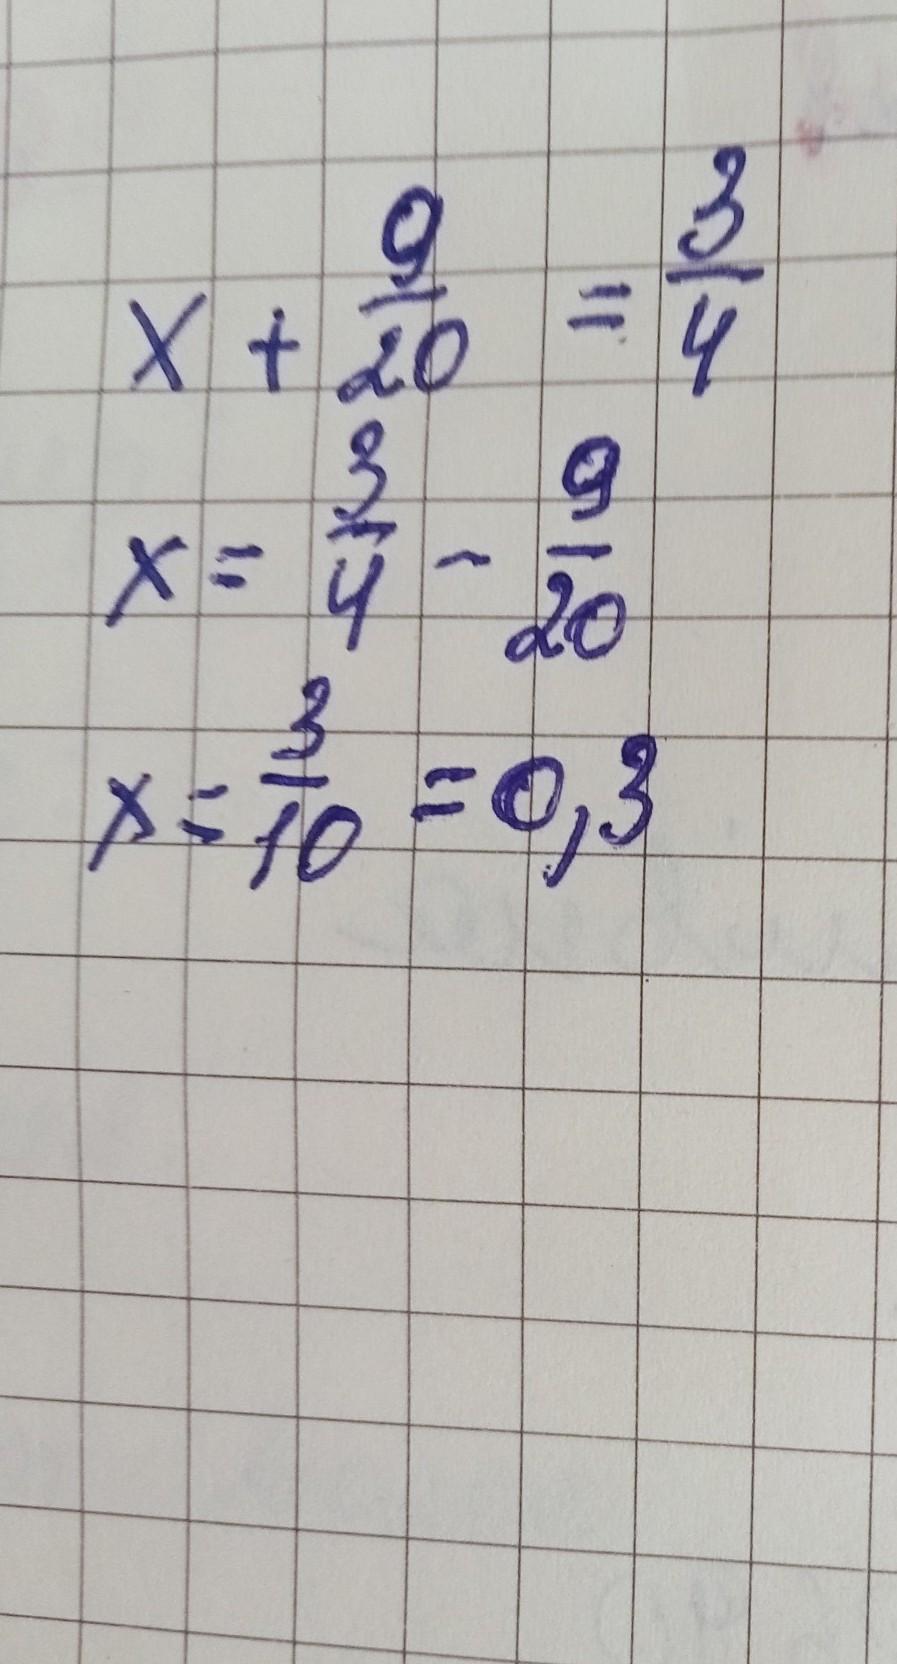 x + 9/20 = 3/4
x = 3/4 - 9/20
x = 3/10 = 0,3